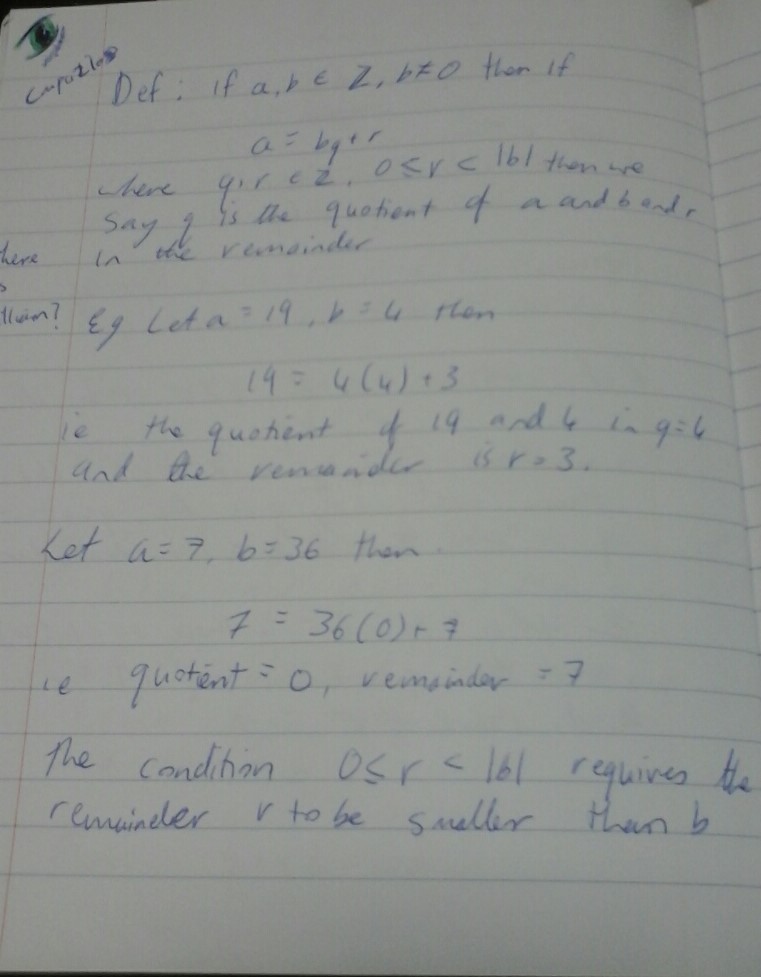 Def : if a, b ∈ Z, b≠0 then if
a = bq+r
where q, r ∈ Z, 0 ≤ r < |b| then we
say q is the quotient of a and b and r
is the remainder
here
s
Eg Let a = 19, b = 4 then
19 = 4(4) + 3
ie the quotient of 19 and 4 is q=4
and the remainder is r = 3.
Let a = 7, b = 36 then
7 = 36(0) + 7
ie quotient = 0, remainder = 7
The condition 0 ≤ r < |b| requires the
remainder r to be smaller than b